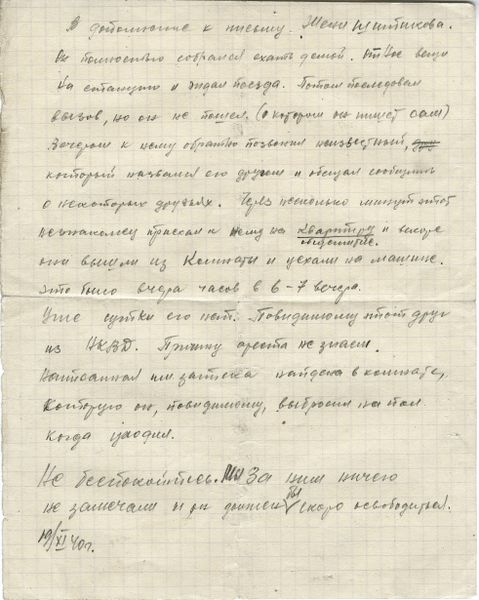 В дополнение к письму. Жени Шитикова.
Он полностью собрался ехать домой. вещи
на станцию и ждал поезда. Потом последовал
вызов, но он не пошел. (о котором он пишет сам)
Вечером к нему обратно позвонил неизвестный,
который назвался его другом и обещал сообщить
о некоторых друзьях. Через несколько минут этот
незнакомец приехал к нему на квартиру и вскоре
общежитие.
они вышли из комнаты и уехали на машине.
Это было вчера часов в 6-7 вечера.
Уже сутки его нет. Повидимому этот друг
из НКВД. Причину ареста не знаем.
Написанная им записка найдена в комнате,
которую он, повидимому, выбросил на пол
когда уходил.
Не беспокойтесь. Мы За ним ничего
не замечали и он должен бы скоро освободиться.
19/XI 40г.